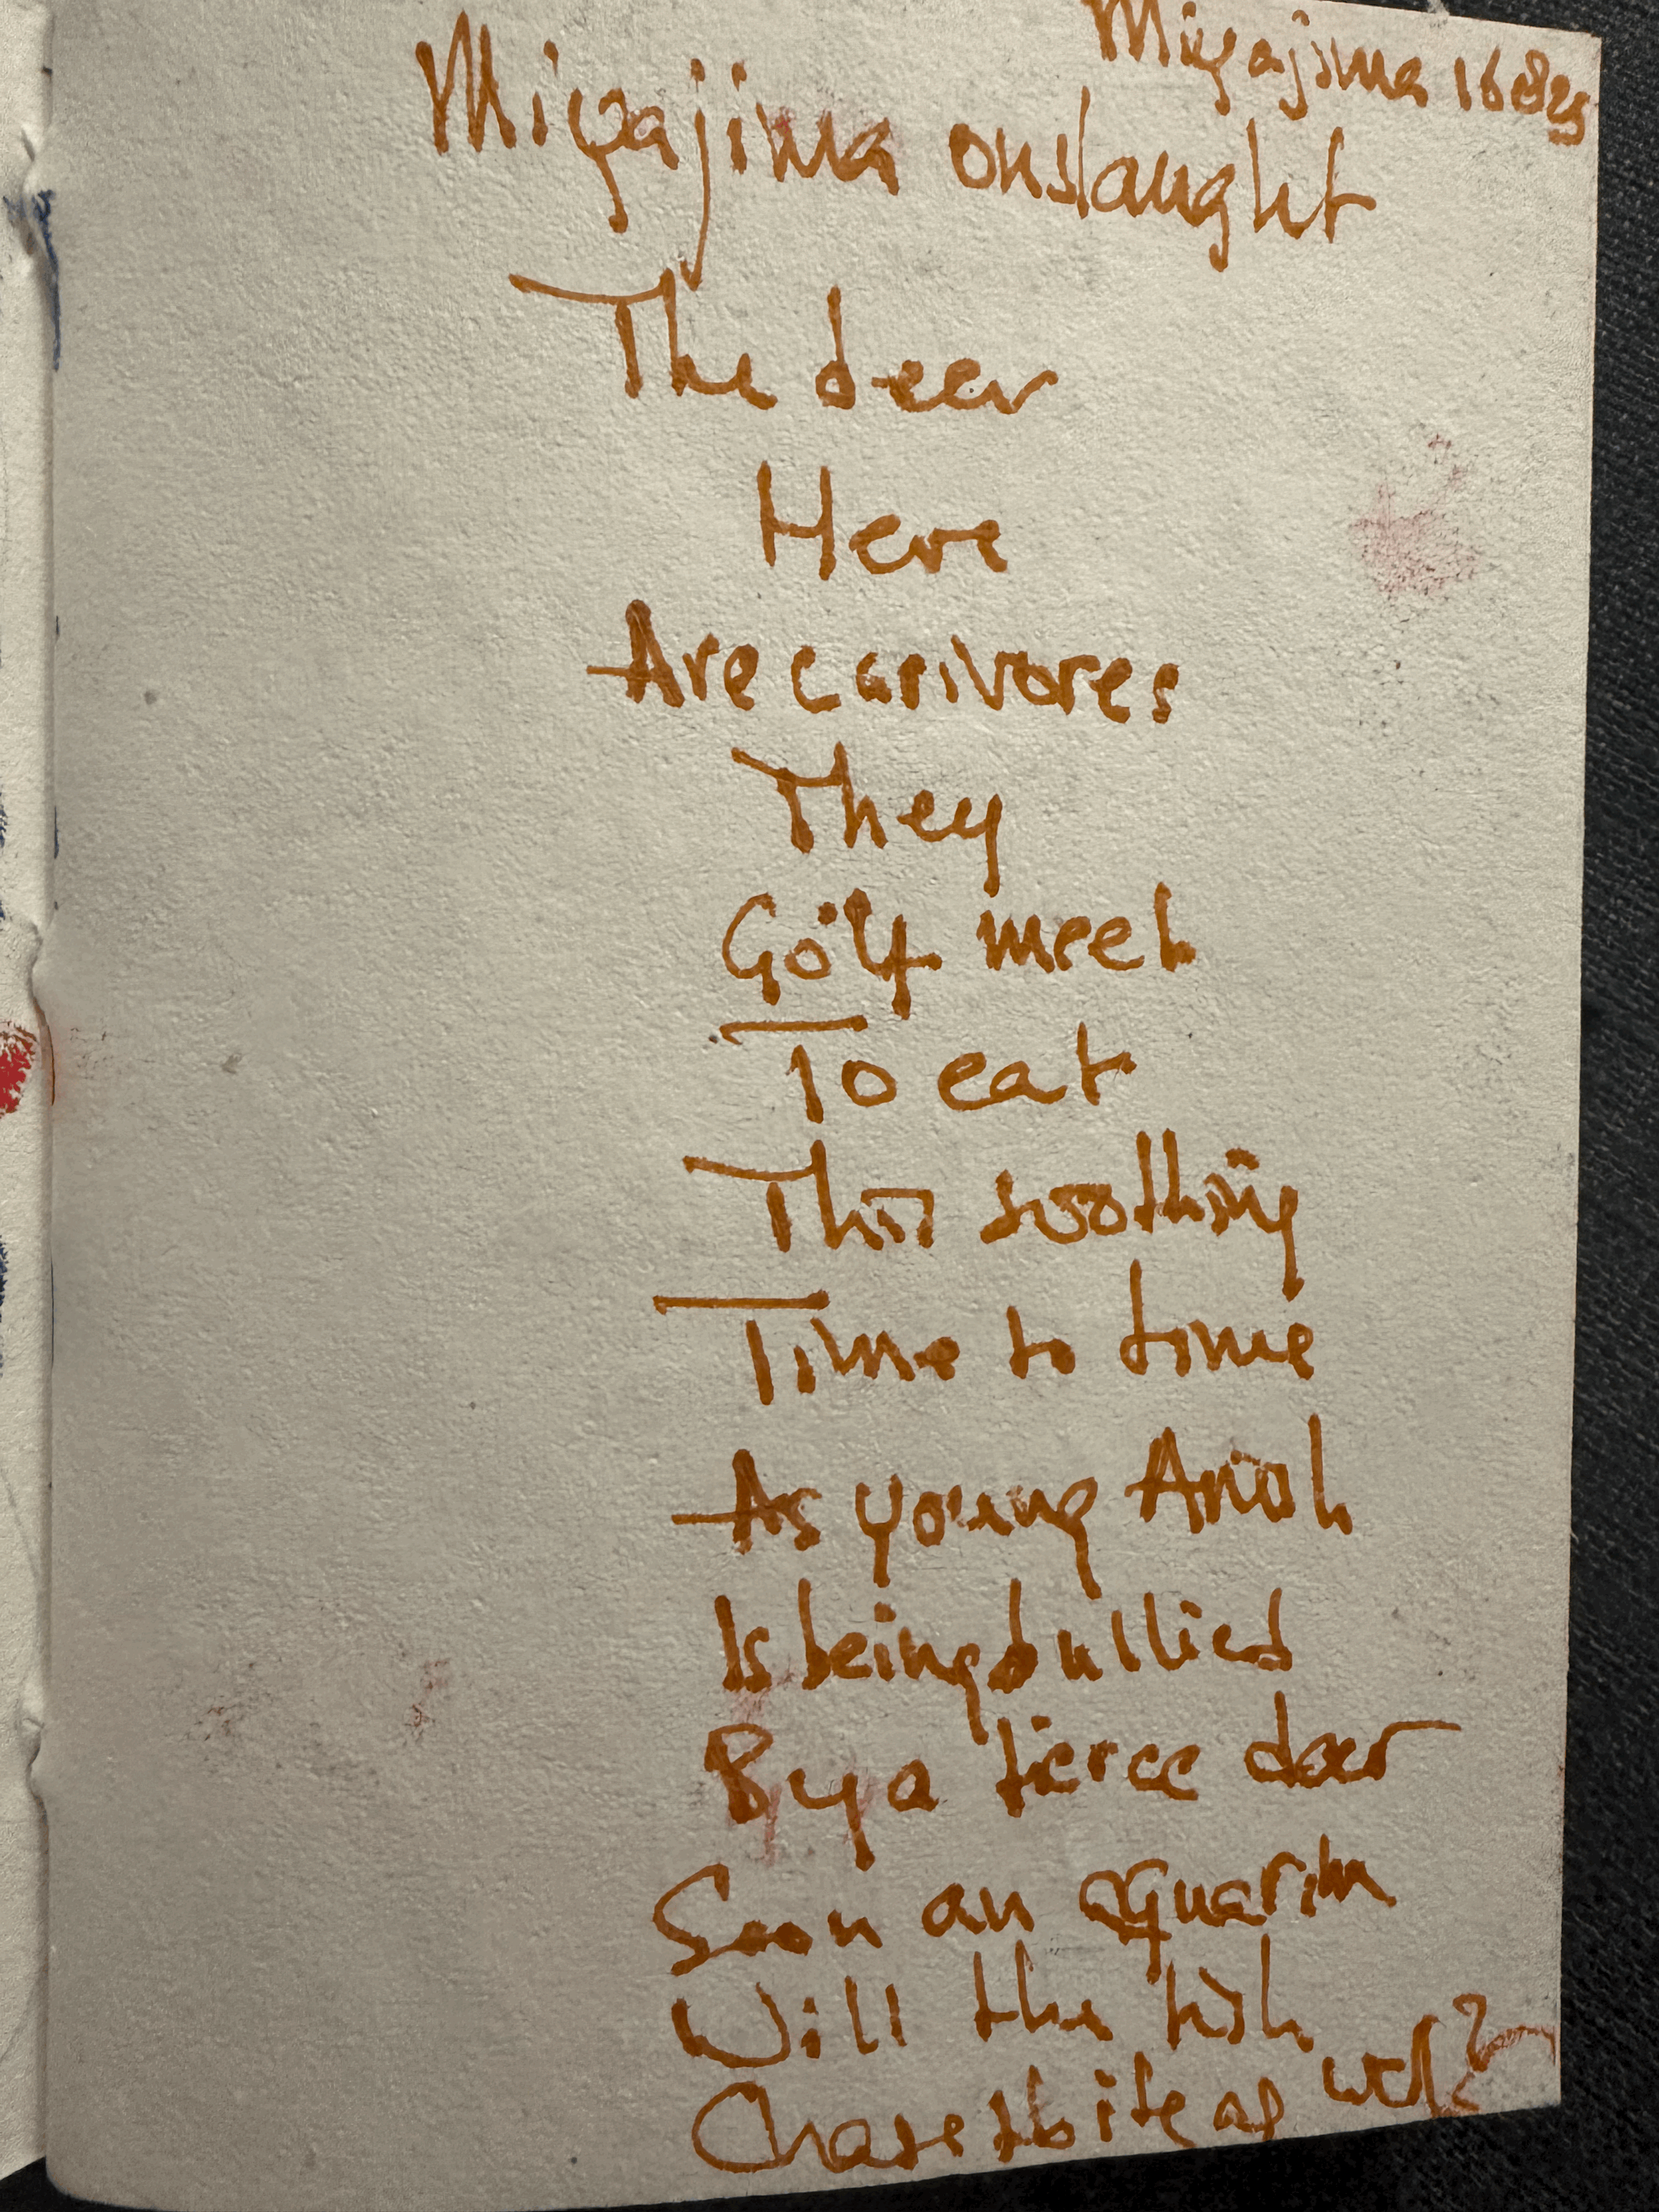 Miyajima 16825
Miyajima onslaught
The deer
Here
Are carnivores
They
Go meet
To eat
This soothing
Time to time
As young Anosh
Is being bullied
By a fierce deer
Soon an aquarim
Will the fish
Chase & bite as well?